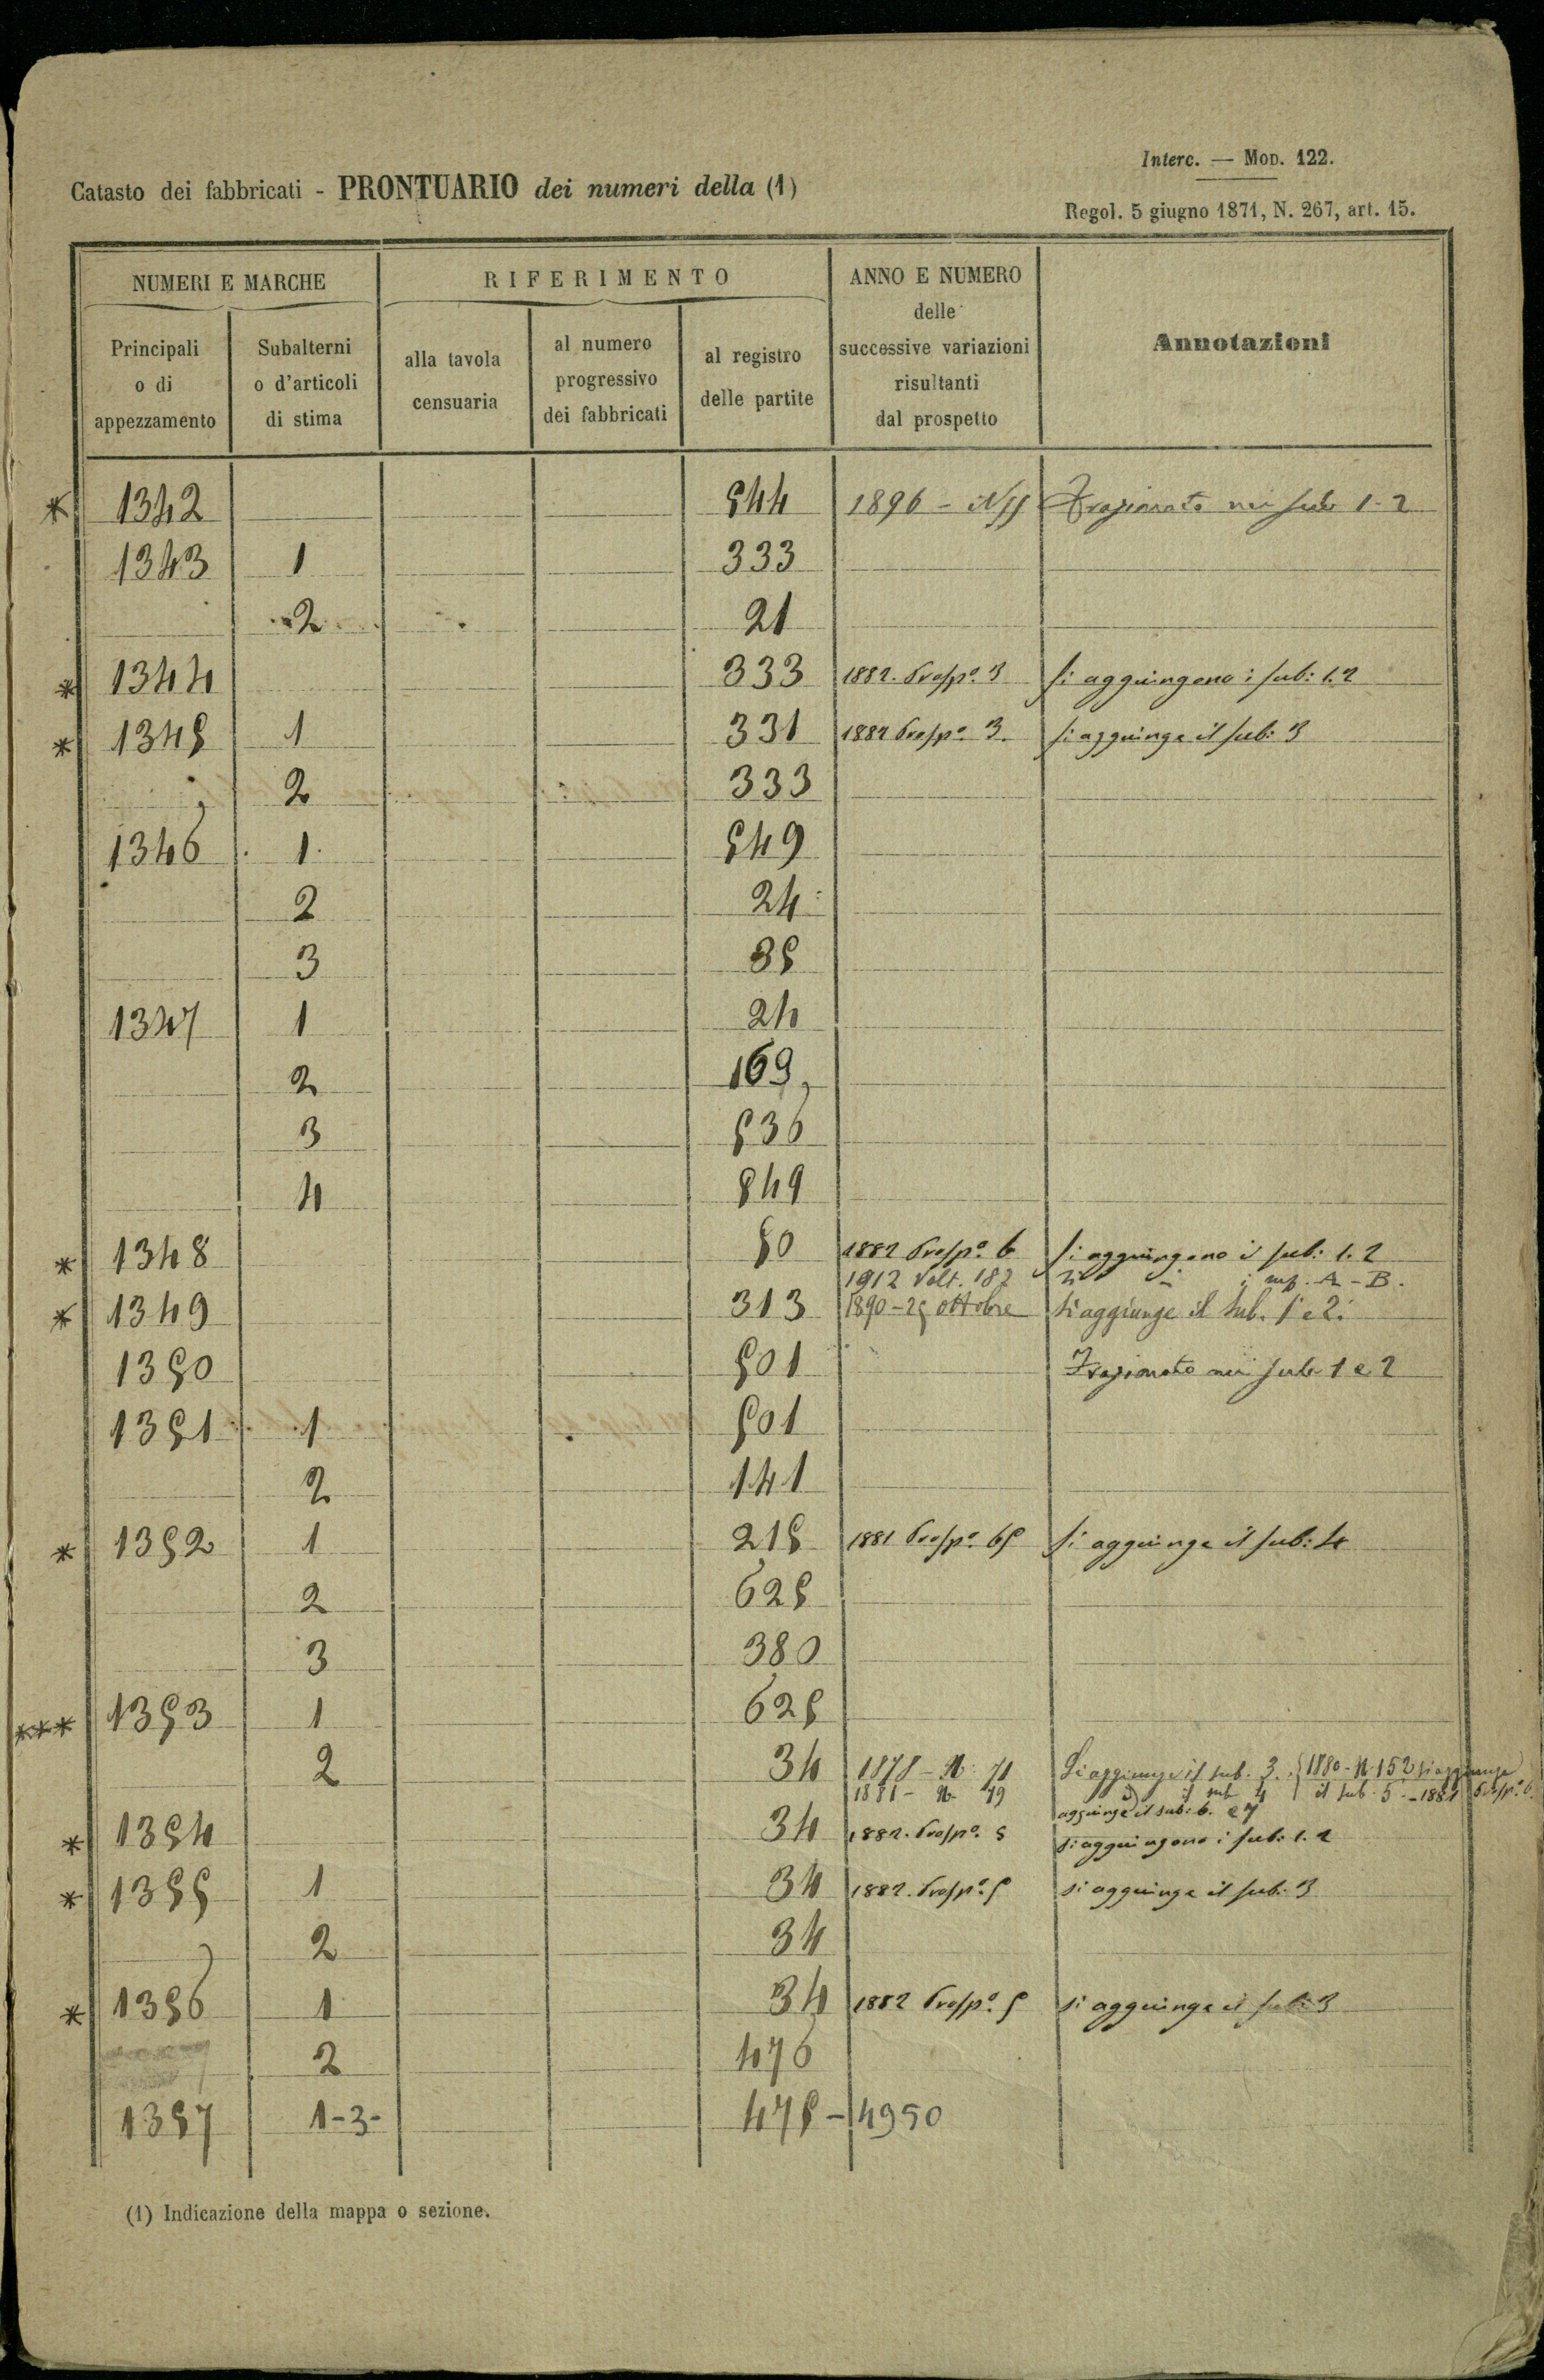 Interc. — Mod. 122.
Catasto dei fabbricati - PRONTUARIO dei numeri della (1)
Regol. 5 giugno 1871, N. 267, art. 15.
NUMERI E MARCHE RIFERIMENTO ANNO E NUMERO delle successive variazioni risultanti dal prospetto Annotazioni
Principali o di appezzamento Subalterni o d'articoli di stima alla tavola censuaria al numero progressivo dei fabbricati al registro delle partite
* 1342 544 1896 - Frazionato nei sub 1-2
1343 1 333
2 21
* 1344 333 1882. Prosp.º 3 si aggiungono i sub: 1.2
* 1345 1 331 1882 Prosp.º 3. si aggiunge il sub: 3
2 333
1346 1 549
2 24
3 85
1347 1 24
2 169
3 536
4 549
* 1348 50 1882 Prosp.º 6 si aggiungono i sub: 1.2
1912 Volt. 182 A - B.
* 1349 313 1890 - 25 ottobre si aggiunge il sub. 1 e 2.
1350 501 Frazionato nei sub 1 e 2
1351 1 501
2 141
* 1352 1 215 1881 Prosp.º 65 si aggiunge il sub: 4
2 625
3 380
*** 1353 1 625
2 34 1878 - N. 71 Si aggiunge il sub. 3. { 1880 - N. 152 si aggiunge
1881 - N. 49 il sub 4 il sub. 5. - 1882 Prosp.º 6
aggiunge il sub: 6. e 7
* 1354 34 1882. Prosp.º 5 si aggiungono i sub: 1. 2
* 1355 1 34 1882. Prosp.º 5 si aggiunge il sub: 3
2 34
* 1356 1 34 1882 Prosp.º 5 si aggiunge il sub: 3
2 476
1357 1-3- 475 - 4950
(1) Indicazione della mappa o sezione.